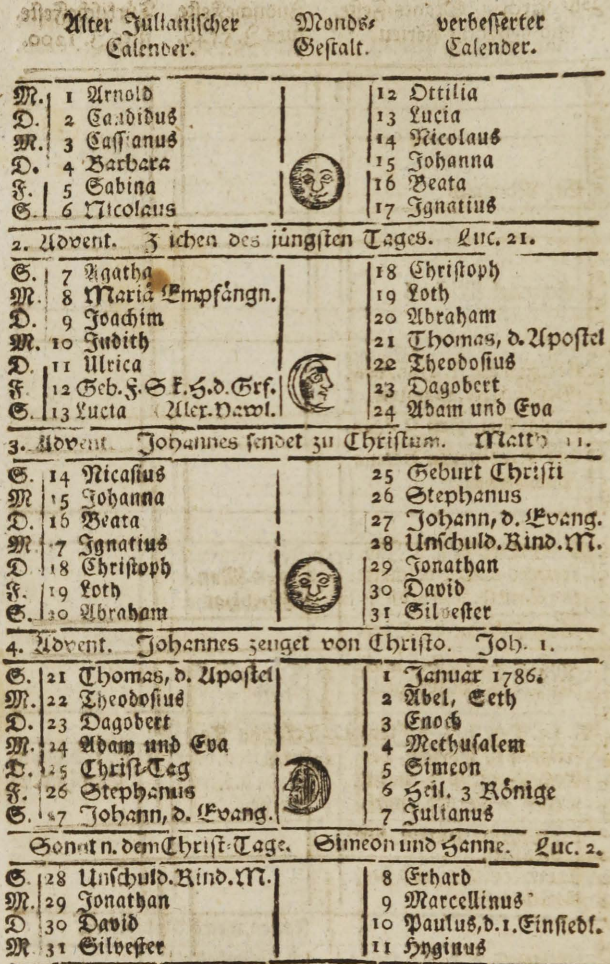 Alter Julianischer Calender. Monds- Gestalt. verbesserter Calender.
M. 1 Arnold 12 Ottilia
D. 2 Candidus 13 Lucia
M. 3 Cassianus 14 Nicolaus
D. 4 Barbara 15 Johanna
F. 5 Sabina 16 Beata
S. 6 Nicolaus 17 Ignatius
2. Advent. Zeichen des jüngsten Tages. Luc. 21.
S. 7 Agatha 18 Christoph
M. 8 Mariä Empfängn. 19 Loth
D. 9 Joachim 20 Abraham
M. 10 Judith 21 Thomas, d. Apostel
D. 11 Ulrica 22 Theodosius
F. 12 Geb. F. S k. H. d. Grf. 23 Dagobert
S. 13 Lucia Alex. Pawl. 24 Adam und Eva
3. Advent. Johannes sendet zu Christum. Matth 11.
S. 14 Nicasius 25 Geburt Christi
M 15 Johanna 26 Stephanus
D. 16 Beata 27 Johann, d. Evang.
M 17 Ignatius 28 Unschuld. Kind. M.
D 18 Christoph 29 Jonathan
F. 19 Loth 30 David
S. 20 Abraham 31 Silvester
4. Advent. Johannes zeuget von Christo. Joh. 1.
S. 21 Thomas, d. Apostel 1 Januar 1786.
M. 22 Theodosius 2 Abel, Seth
D. 23 Dagobert 3 Enoch
M. 24 Adam und Eva 4 Methusalem
D. 25 Christ-Tag 5 Simeon
F. 26 Stephanus 6 Heil. 3 Könige
S. 27 Johann, d. Evang. 7 Julianus
Sonnt n. dem Christ-Tage. Simeon und Hanne. Luc. 2.
S. 28 Unschuld. Kind. M. 8 Erhard
M. 29 Jonathan 9 Marcellinus
D 30 David 10 Paulus, d. 1. Einsiedl.
M 31 Silvester 11 Hyginus